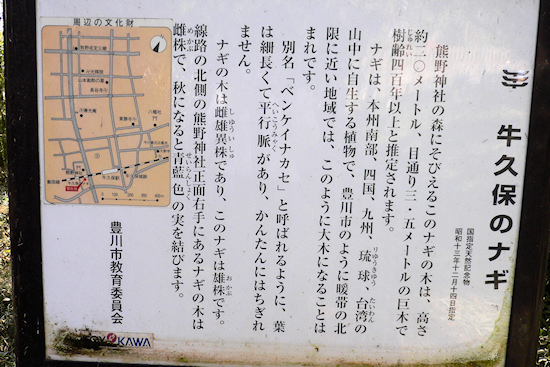 牛久保のナギ
国指定天然記念物
昭和十三年十二月十四日指定
熊野神社の森にそびえるこのナギの木は、高さ
約二〇メートル、目通り三・五メートルの巨木で
樹齢四百年以上と推定されます。
じゅれい
ナギは、本州南部、四国、九州、琉球、台湾の
りゅうきゅう
たいわん
山中に自生する植物で、豊川市のように暖帯の北
限に近い地域では、このように大木になることは
まれです。
別名「ベンケイナカセ」と呼ばれるように、葉
は細長くて平行脈があり、かんたんにはちぎれ
へいこうみゃく
ません。
ナギの木は雌雄異株であり、このナギは雄株です。
しゆういしゅ
おかぶ
線路の北側の熊野神社正面右手にあるナギの木は
雌株で、秋になると青藍色の実を結びます。
めかぶ
せいらんしょく
豊川市教育委員会
周辺の文化財